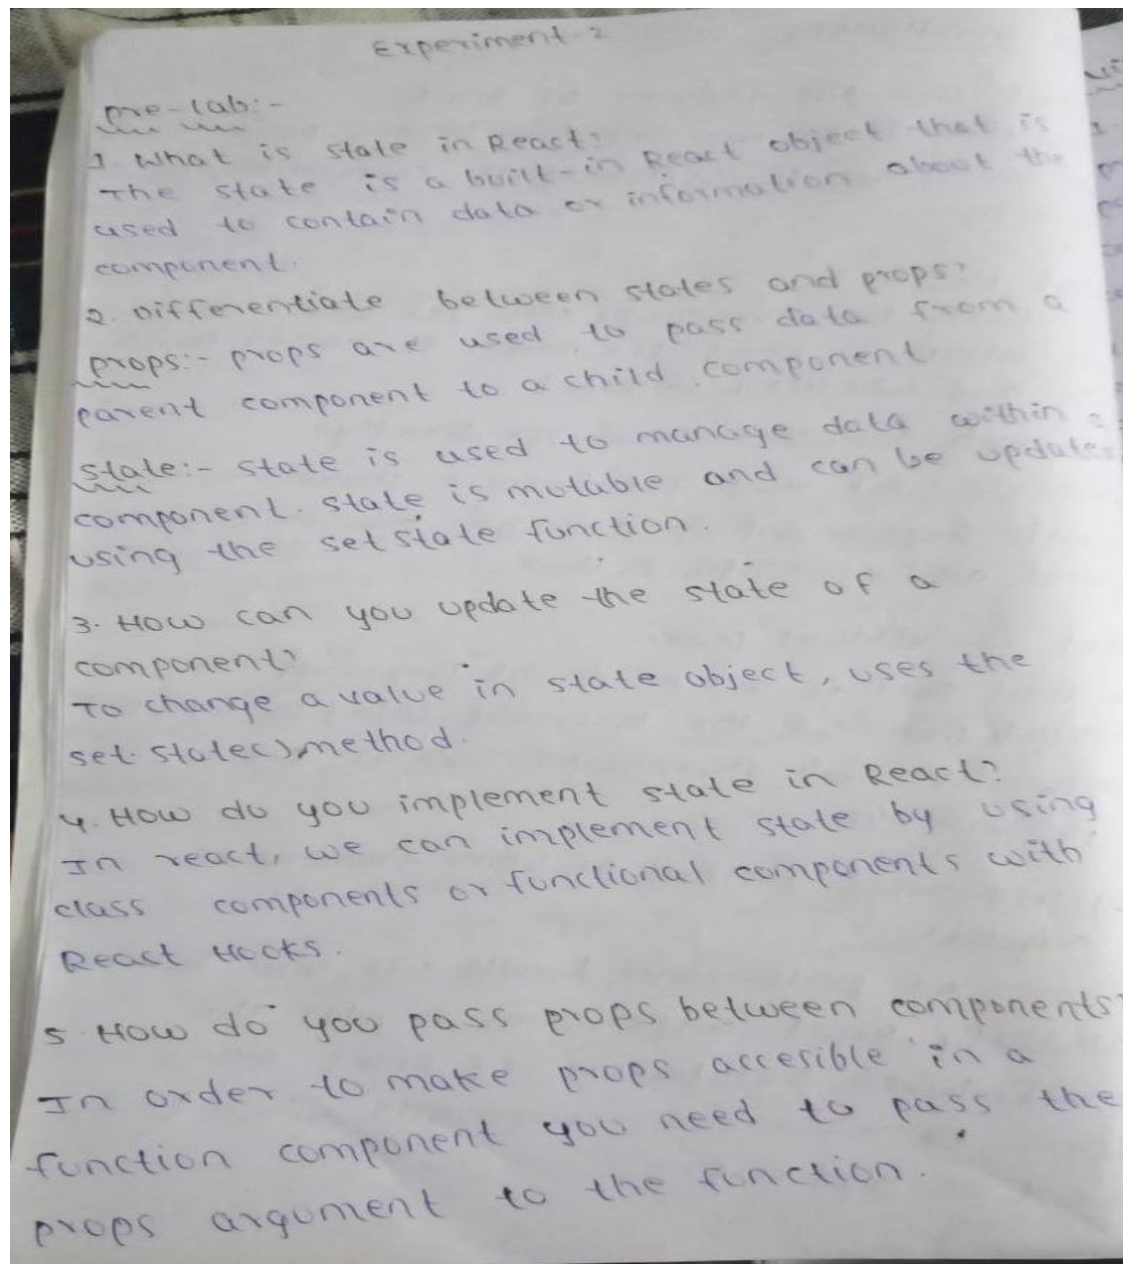 Experiment-2
pre-lab:-
1. What is state in React?
The state is a built-in React object that is
used to contain data or information about the
component.
2. Differentiate between states and props?
props:- props are used to pass data from a
parent component to a child component
state:- state is used to manage data within a
component. state is mutable and can be updated
using the setstate function.
3. How can you update the state of a
component?
To change a value in state object, uses the
set.state() method.
4. How do you implement state in React?
In react, we can implement state by using
class components or functional components with
React Hooks.
5. How do you pass props between components?
In order to make props accesible in a
function component you need to pass the
props argument to the function.